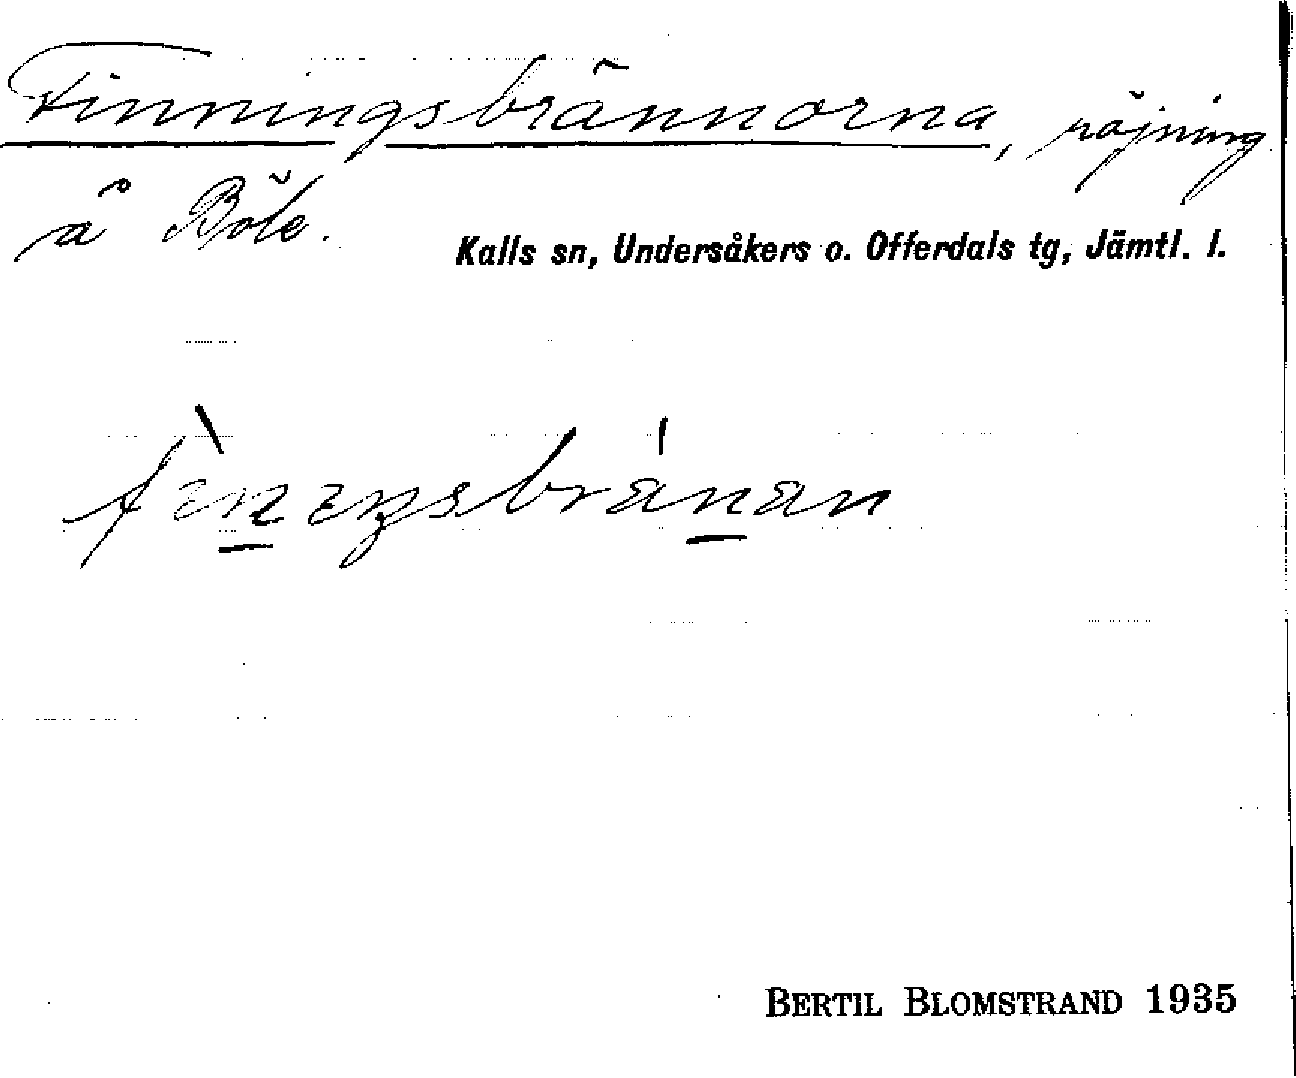 Finningsbrännorna, röjning
å Böle.
Kalls sn, Undersåkers o. Offerdals tg, Jämtl. l.
fìnıŋsbränan
BERTIL BLOMSTRAND 1935